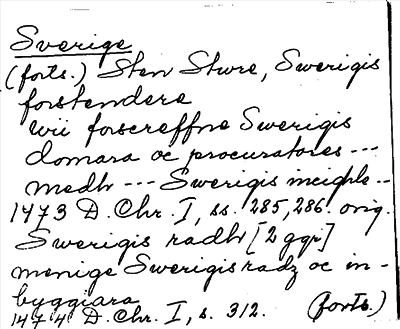 Sverige
(forts.) Sten Sture, Swerigis
forstendere
wii forscreffne Swerigis
domara oc procuratores ---
medh --- Swerigis incigle --
1473 D. Chr. I, ss. 285, 286. orig.
Swerigis radh [2 ggr]
menige Swerigis radz oc in-
byggiara
1474 D. Chr. I, s. 312. (forts.)